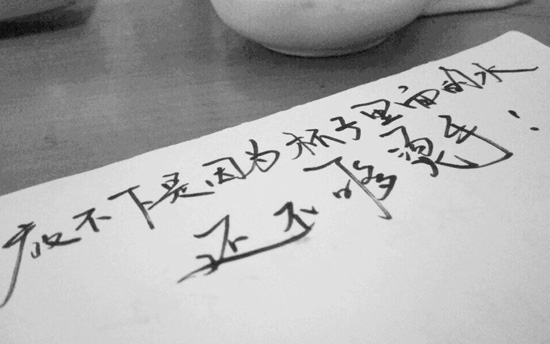 放不下是因为杯子里面的水
还不够烫手！